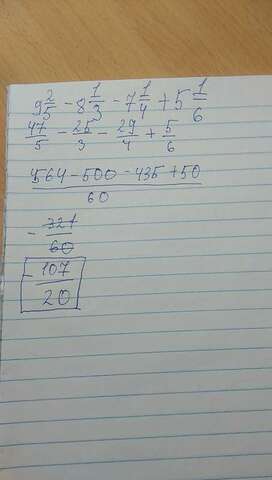 9 2/5 - 8 1/3 - 7 1/4 + 5 1/6
47/5 - 25/3 - 29/4 + 5/6
564 - 500 - 435 + 50
60
- 321/60
- 107/20